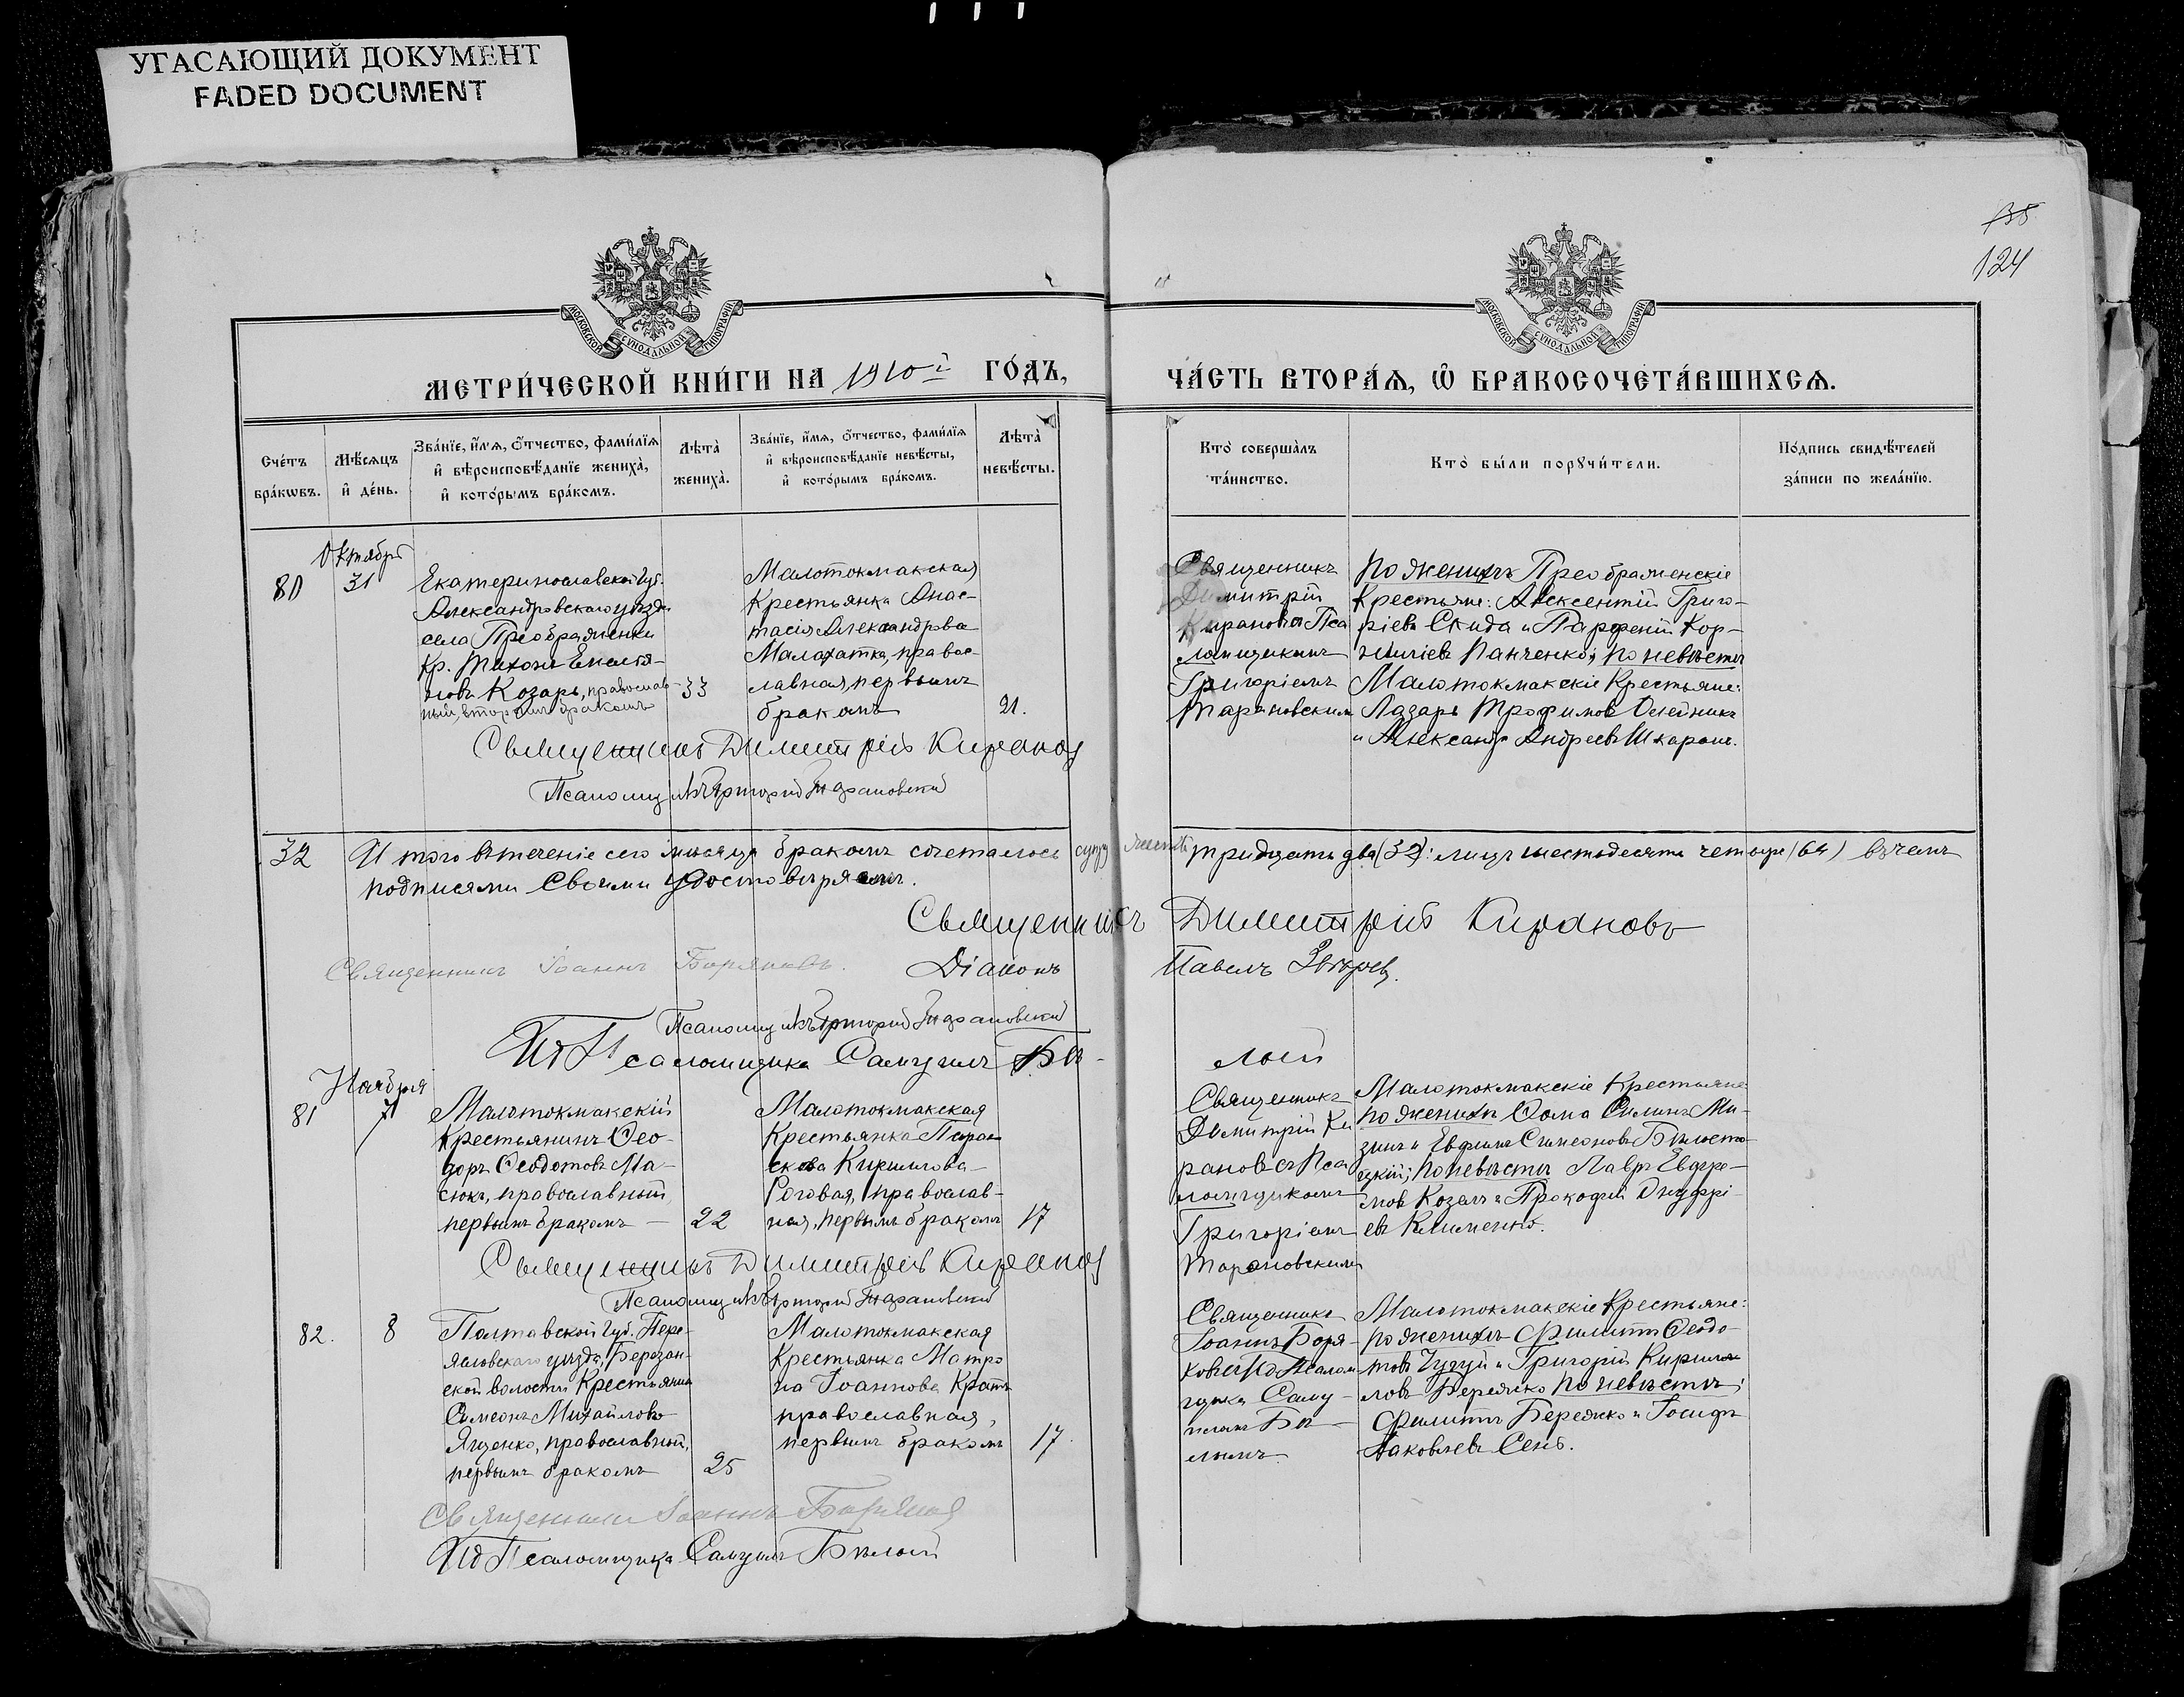 УГАСАЮЩИЙ ДОКУМЕНТ
FADED DOCUMENT
135
124
МОСКОВСКОЙ СУНОДАЛЬНОЙ ТИПОГРАФІИ
МОСКОВСКОЙ СУНОДАЛЬНОЙ ТИПОГРАФІИ
МЕТРИ́ЧЕСКОЙ КНИ́ГИ НА 1910й ГО́ДЪ,
ЧА́СТЬ ВТОРА́Ѧ, Ѽ БРАКОСОЧЕТА́ВШИХСѦ.
Сче́тъ
бра́кѡвъ.
Мѣ́сяцъ
и҆ де́нь.
Зва́нїе, и҆́мѧ, ѻ҆́тчество, фами́лїѧ
и҆ вѣроисповѣ́данїе жениха̀,
и҆ кото́рымъ бра́комъ.
Лѣта̀
жениха̀.
Зва́нїе, и҆́мѧ, ѻ҆́тчество, фами́лїѧ
и҆ вѣроисповѣ́данїе невѣ́сты,
и҆ кото́рымъ бра́комъ.
Лѣта̀
невѣ́сты.
Кто̀ соверша́лъ
та́инство.
Кто̀ бы́ли порꙋчи́тели.
По́дпись свидѣ́телей
за́писи по жела́нїю.
Октября
80
31
Екатеринославской Губ.
Александровскаго уѣзда
села Преображенки
Кр. Тихонъ Емелья-
новъ Козарь, православ-
ный, вторымъ бракомъ
33
Малотокмакская
Крестьянка Анас-
тасія Александрова
Малахатка, правос-
лавная, первымъ
бракомъ
21.
Священникъ
Димитрій
Кирановъ съ Пса
ломщикомъ
Григоріемъ
Тарановскимъ
По женихѣ Преображенскіе
Крестьяне: Авксентій Григо-
ріевъ Скида и Парфеній Кор-
ниліевъ Панченко; по невѣстѣ
Малотокмакскіе Крестьяне:
Лазарь Трофимовъ Олейникъ
и Александръ Андреевъ Шкарпа.
Священникъ Димитрій Кирановъ
Псаломщикъ Григорій Тарановскій
32 Итого втеченіе сего мѣсяца бракомъ сочеталось супружествъ тридцать два (32): лицъ шестьдесятъ четыре (64) въ чемъ
подписями своими удостовѣряемъ.
Священникъ Димитрій Кирановъ
Священникъ Іоаннъ Боряковъ. Діаконъ Павелъ Звѣрев.
Псаломщикъ Григорій Тарановскій
И.д. Псаломщика Самуилъ Бѣ-
лый
Ноября
81
7
Малотокмакскій
Крестьянинъ Ѳео-
доръ Ѳеодотовъ Ма-
сюкъ, православный,
первымъ бракомъ
22
Малотокмакская
Крестьянка Парас
кева Кириллова
Роговая, православ-
ная, первымъ бракомъ
17
Священникъ
Димитрій Ки
рановъ съ Пса
ломщикомъ
Григоріемъ
Тарановскимъ
Малотокмакскіе Крестьяне
по женихѣ Ѳома Силинъ Ми-
зинъ и Евфимъ Симеоновъ Бѣлосто-
цкій; по невѣстѣ Лавръ Евфре-
мовъ Козачъ и Прокофій Онуфрі-
евъ Клименко.
Священникъ Димитрій Кирановъ
Псаломщикъ Григорій Тарановскій
82.
8
Полтавской Губ. Пере-
яславскаго уѣзда, Березан-
ской волости Крестьянинъ
Симеонъ Михайловъ
Ященко, православный,
первымъ бракомъ
25
Малотокмакская
Крестьянка Матро
на Іоаннова Кратъ
православная,
первымъ бракомъ
17.
Священникъ
Іоаннъ Боря-
ковъ с И.д. Псалом
щика Саму-
иломъ Бѣ-
лымъ.
Малотокмакскіе Крестьяне:
по женихѣ Филиппъ Ѳеодо-
товъ Чугуй и Григорій Кирил-
ловъ Бережко по невѣстѣ:
Филиппъ Бережко и Іосифъ
Іаковлевъ Сень.
Священникъ Іоаннъ Боряковъ
И.д. Псаломщика Самуилъ Бѣлый